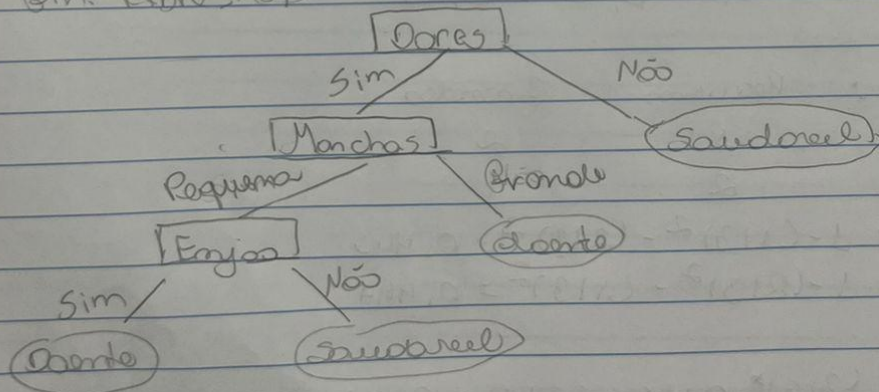 Dores
Sim Não
Manchas Saudavel
Pequena Grande
Enjoo doente
Sim Não
Doente Saudavel